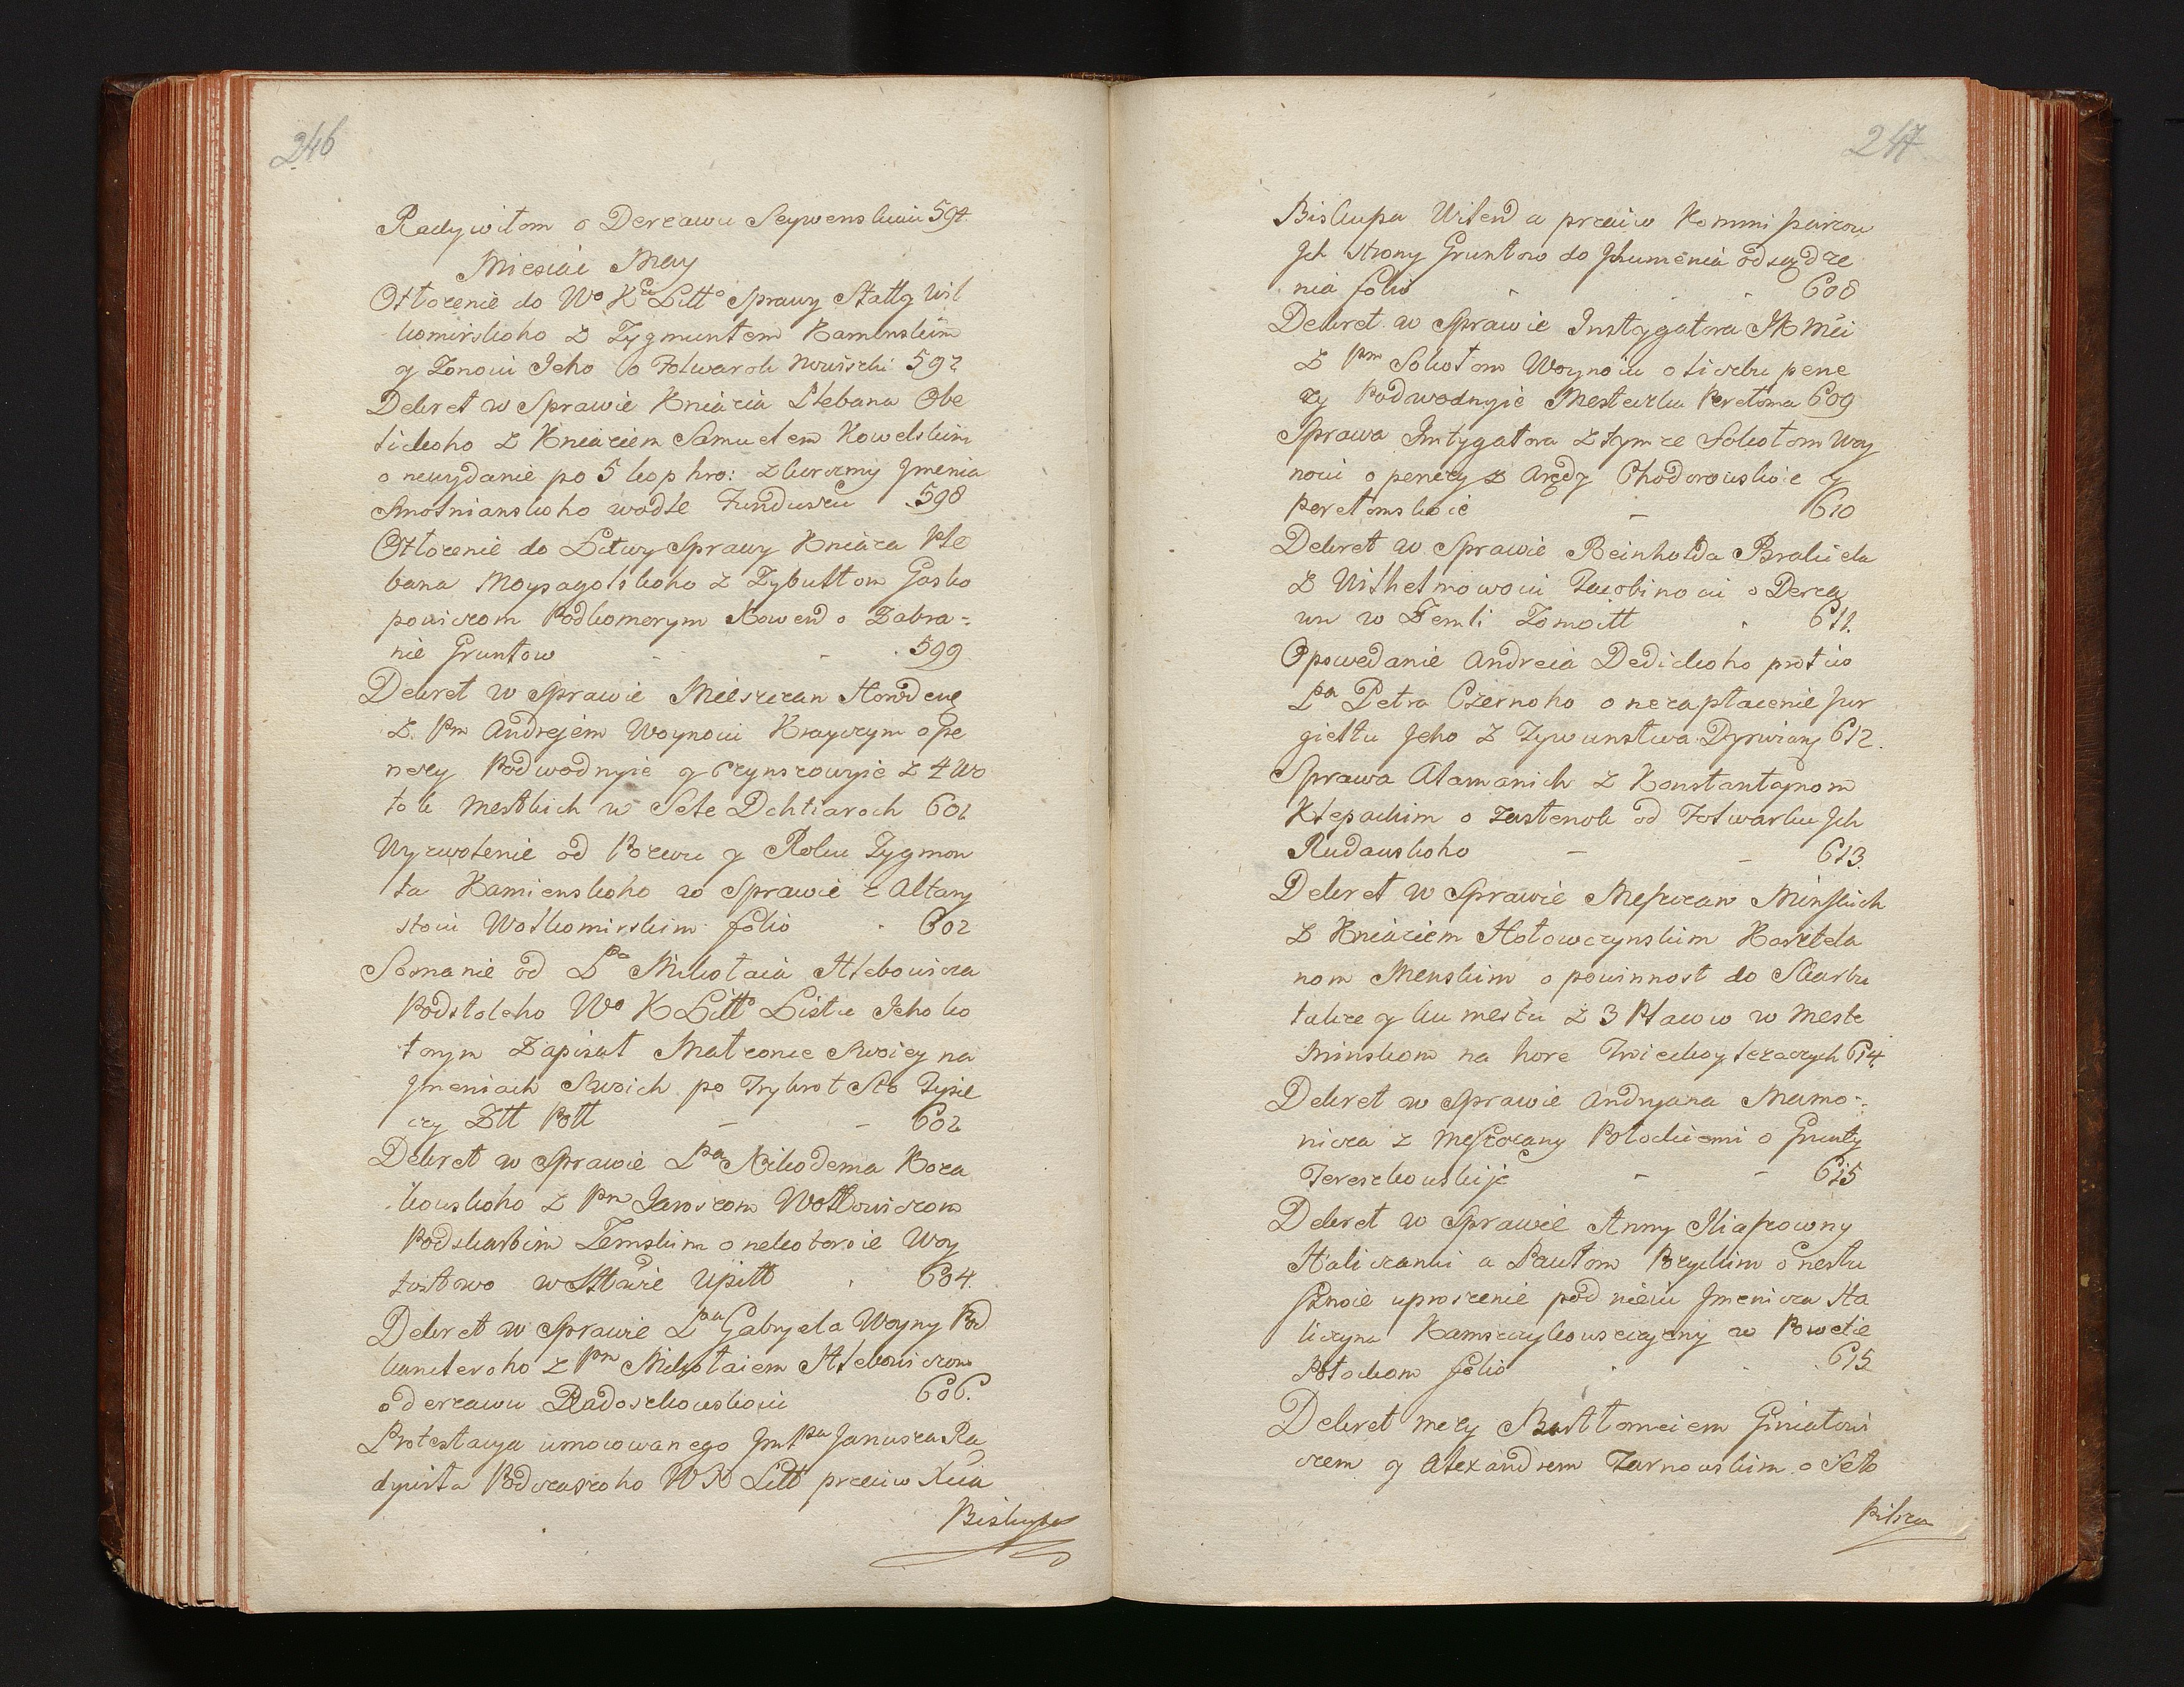 246
Radywiłom o Derżawu Seywenskuiu 594
Miesiac May
Otłożenie do Wo Ka Litto Sprawy Stattg Wił
komirskoho z Zygmuntem Kamenskim
y Żonoiu Jeho o Folwarok 592
Dekret w Sprawie Kniazia Plebana Obe
lickoho z Kniaziem Samuelem Kowelskim
o newydanie po 5 kop hro: z Imenia
Smolnianskoho wodle Funduszu 598
Otłożenie do Litwy Sprawy Kniaza Ple
bana Moysagolskoho z Zybułtom Gosko
powiczom Podkomorym Kowen o Zabra-
nie Gruntow 599
Dekret w Sprawie Mieszczan Horoden
z Pm Andrejem Woynoiu Kraywczym o pe
nezy Podwodnyie y Czynszowyie z 4 Wo
lok Mestkich w Sele Dehtiaroch 601
Wyzwolenie od Pozwu y Roku Zygmon
ta Kamienskoho w Sprawie z Altary
stoiu Wołkomirskim folio 602
Soznanie od Pa Mikołaia Hlebowicza
Podstoleho Wo K Litto Listu Jeho ko
torym Zapisał Małżonce Swoiey na
Imeniach Swoich po Trykrot Sto Tysie
czy Złt Poll 602
Dekret w Sprawie Pa Nikodema Koza
kowskoho z Pm Jaroszom Wołłowiczom
Podskarbim Zemskim o nekotoroie Woy
tostwo w Sttwie Upitt 604
Dekret w Sprawie Pa Gabryela Woyny Pod
kancleroho z Pm Mikołaiem Hlebowiczom
o derzawu Radoszkowskoiu 606.
Protestacya umocowanego Jm Pa Janusza Ra
dywiła Podczaszoho W X Litt przeciw Xcia
Biskupa
247
Biskupa Wilend a przeciw Kommissarzow
Ich Strony Gruntow do Ihumenia odsądze
nia folio 608
Dekret w Sprawie Instygatora JKMci
z Pm Sokołom Woynoiu o liczbu pene
zy Podwodnyie Mesteczku Perełoma 609
Sprawa Instygatora z tym ze Sokołom Woy
noiu o penezy z Arędy Chodorowskoie y
Perełomskoie 610
Dekret w Sprawie Reinholda Brakiela
z Wilhelmowoiu Jacobinoiu o Derza
wu w Zemli Żomoitt 611.
Opowedanie Andreia Dedickoho protiw
Pa Petra Czernoho o nezapłacenie Jur
giełtu Jeho z Tywunstwa Dyrwiany 612.
Sprawa Ałamanich z Konstantynom
Kłepackim o zastenok od Folwarku Ich
Rudauskoho 613.
Dekret w Sprawie Meszczan Minskich
z Kniaziem Hołowczynskim Kasztela
nom Menskim o powinnost do Skarbu
takze y ku mestu z 3 Placow w Meste
Minskom na hore Troieckoy lezaczych 614.
Dekret w Sprawie Andryana Mamo-
nicza z Meszczany Połockiemi o Grunty
Tereszkowskije 615
Dekret w Sprawie Anny Iliaszowny
Haliczanki a Pawłom Bzyckim o nesłu
sznoie uproszenie pod neiu Imenicza Ha
liczyna Kamszczykowszczyzny w Powetie
Połockom folio 615
Dekret mezy Bartłomeiem Gniatowi
czem y Alexandrem Żarnowskim o Seło
Pilsza